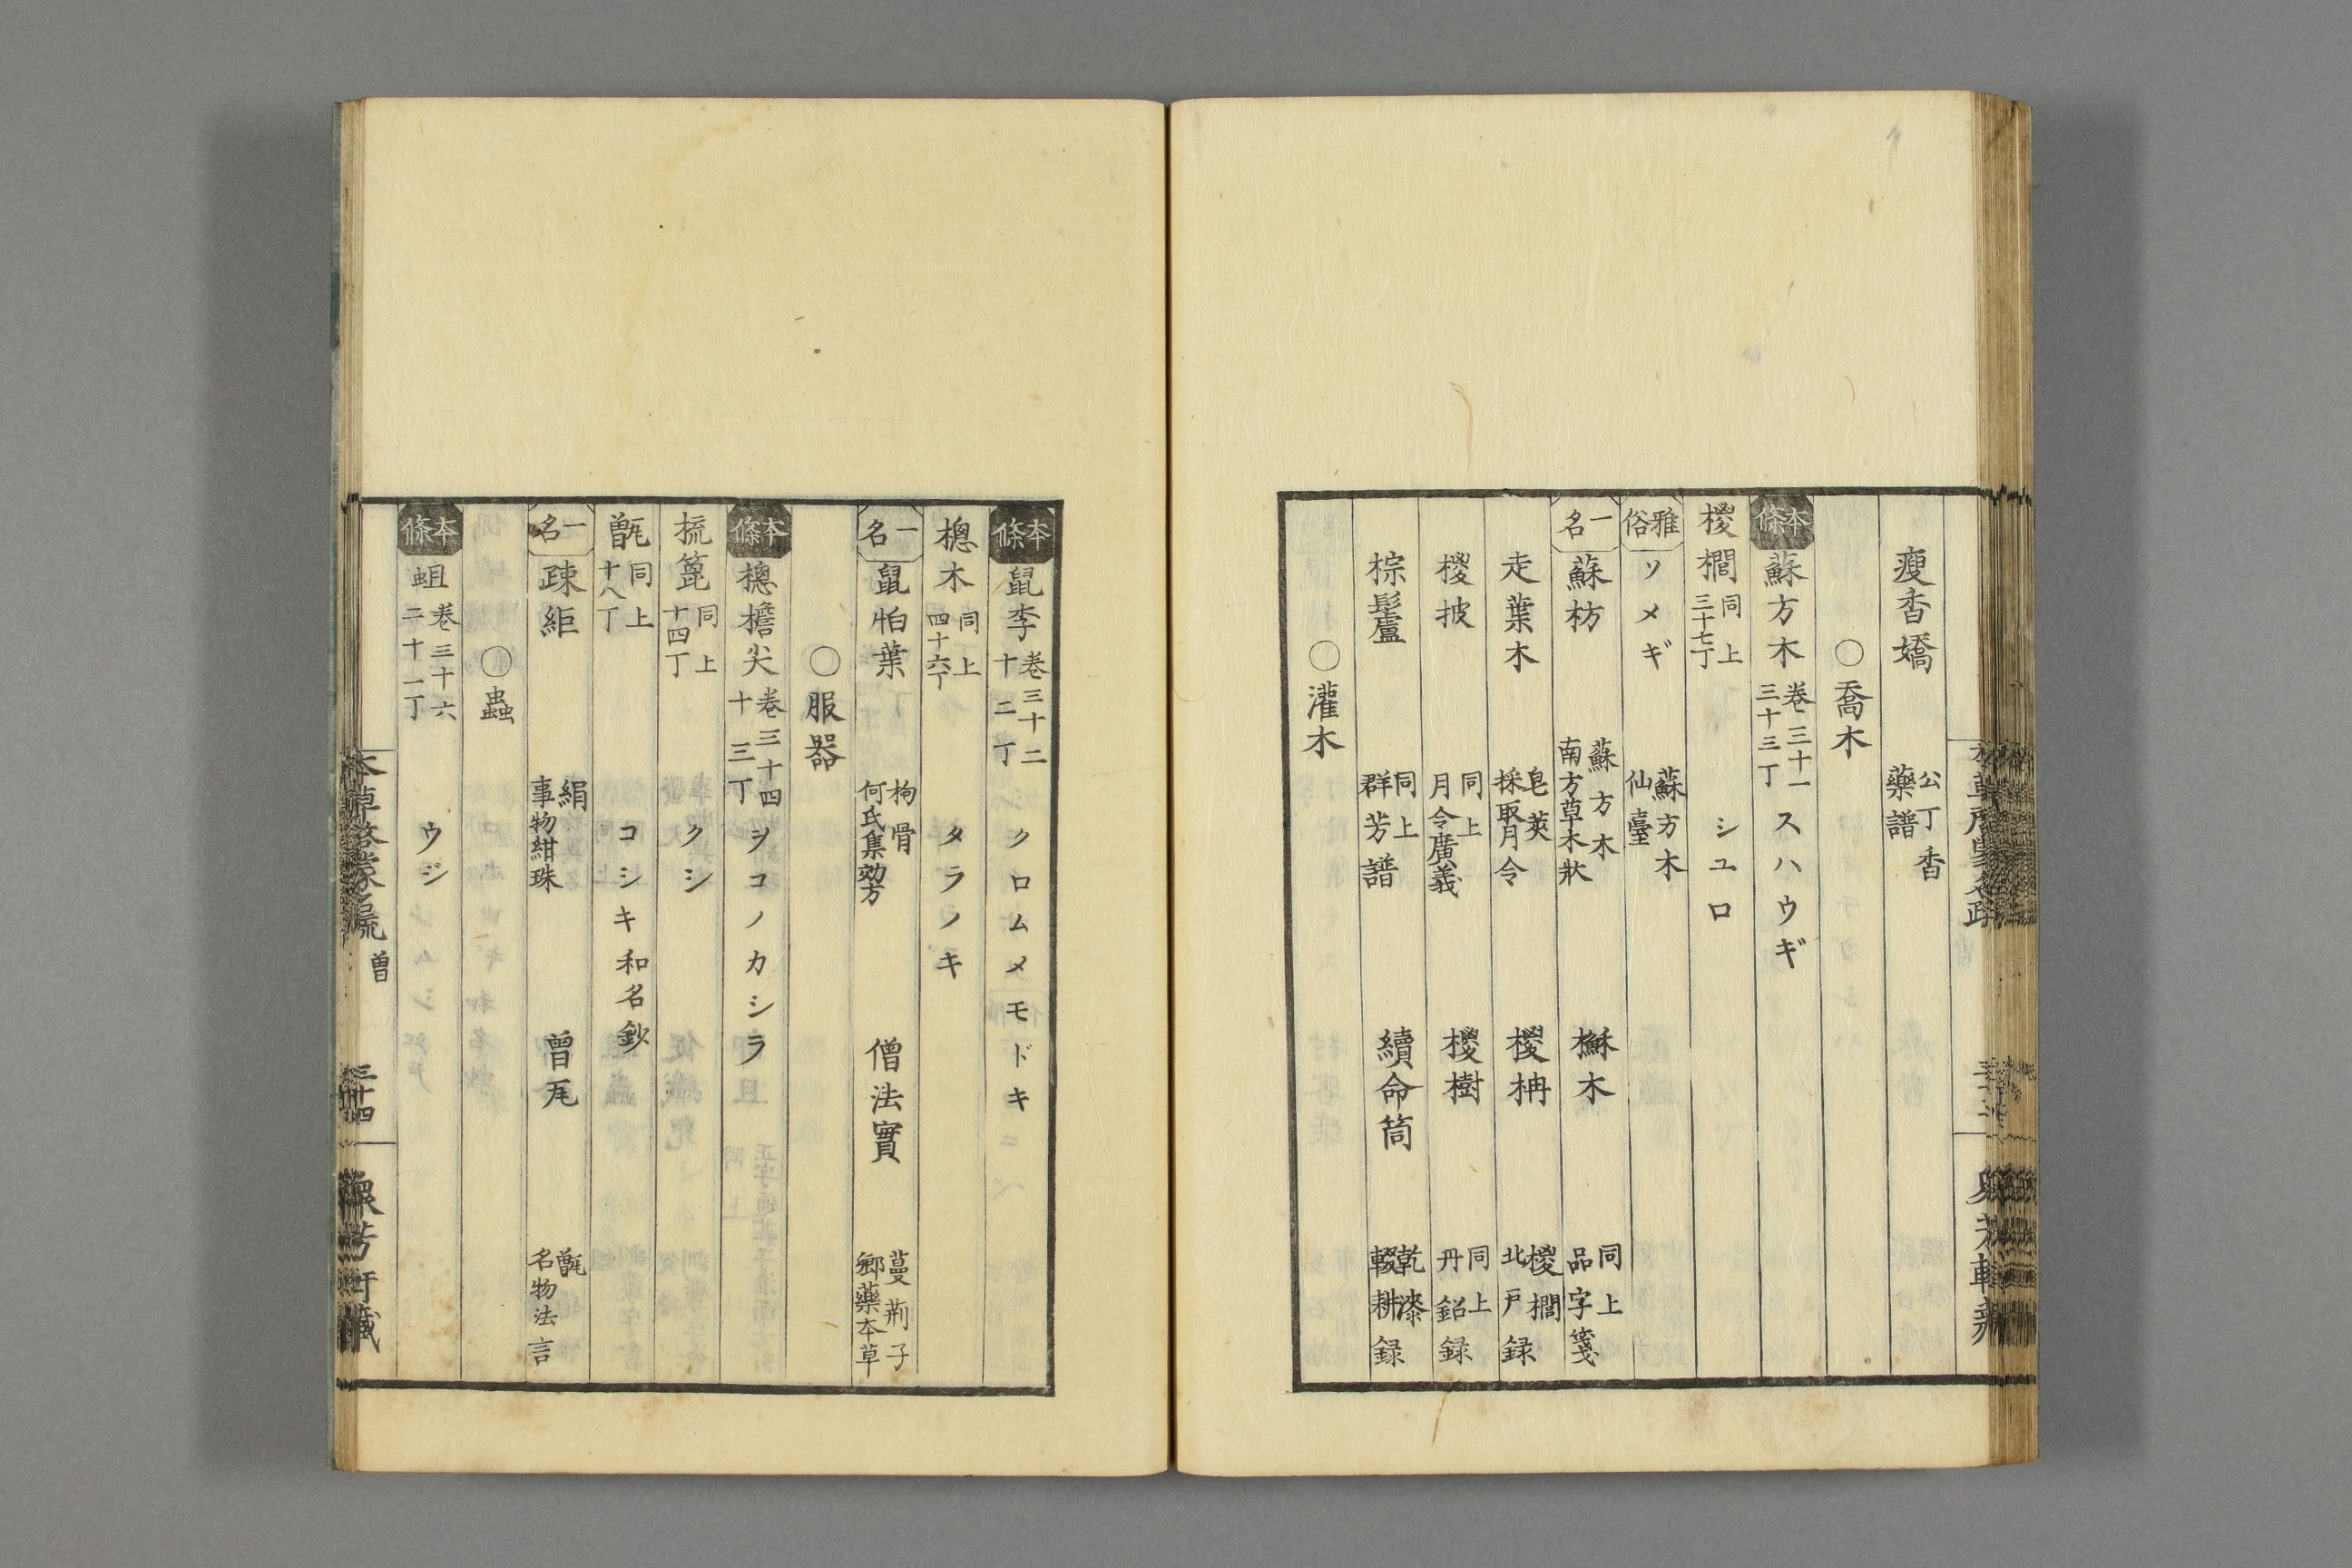 瘦香嬌 公丁香 藥譜
〇喬木
本條 蘇方木 巻三十一 三十三丁 スハウギ
椶櫚 同上 三十七丁 シユロ
雅俗 ソメギ 蘇方木 仙臺
一名 蘇枋 蘇方木 南方草木狀 櫯木 同上 品字箋
走葉木 皂莢 採取月令 椶枏 椶櫚 北戸録
椶披 同上 月令廣義 椶樹 同上 丹鉛録
棕髸 同上 群芳譜 續命筒 乾漆 輟耕録
〇灌木
本條 鼠李 巻三十二 十二丁 クロムメモドキ
楤木 同上 四十六丁 タラノキ
一名 鼠怕葉 枸骨 何氏集効方 僧法實 蔓荊子 郷藥本草
〇服器
本條 楤檐尖 巻三十四 十三丁 ヲコノカシラ
梳篦 同上 十四丁 クシ
甑 同上 十八丁 コシキ 和名鈔
一名 疎絚 絹 事物紺珠 曾瓦 甑 名物法言
〇蟲
本條 蛆 巻三十六 二十一丁 ウジ
本草啓蒙名疏 曾 三十四